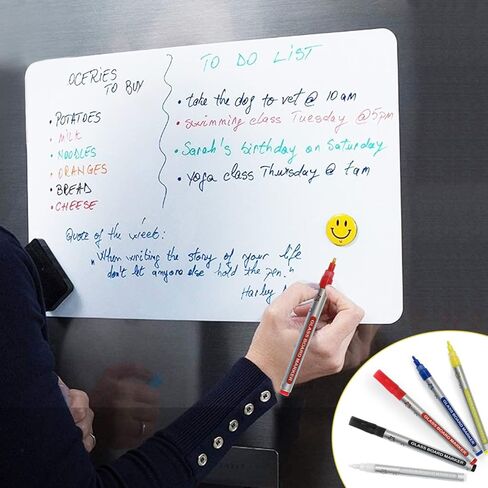 OCERIES
TO BUY
• POTATOES
• MILK
• NOODLES
• ORANGES
• BREAD
• CHEESE
TO DO LIST
• take the dog to vet @ 10 am
• Swimming class Tuesday @ 5pm
• Sarah's birthday on Saturday
• Yoga class Thursday @ 7am
Quote of the week:
"When writing the story of your life
don't let anyone else hold the pen."
Harley
GLASS BOARD MARKER
GLASS BOARD MARKER
GLASS BOARD MARKER
GLASS BOARD MARKER